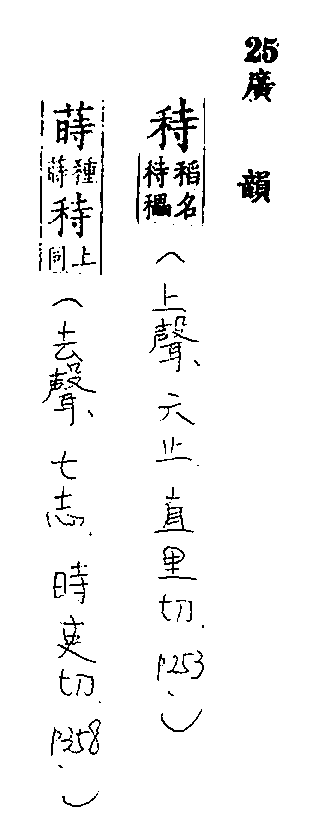 25廣韻
秲稻名秲穊(上聲、六止、直里切、P253、)
蒔種蒔秲上同(去聲、七志、時吏切、P358、)